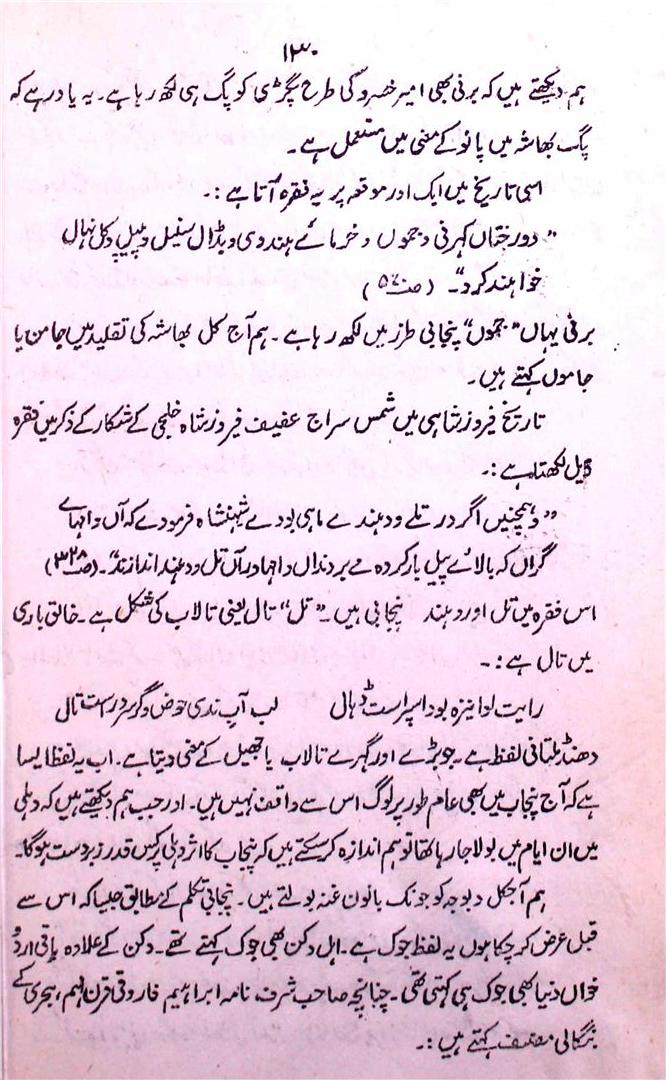 ۱۳۰
ہم دیکھتے ہیں کہ برنی بھی امیر خسرو کی طرح پگڑی کو پگ ہی لکھ رہا ہے۔ یہ یاد رہے کہ
پگ بھاشہ میں پانو کے معنی میں مستعمل ہے۔
اسی تاریخ میں ایک اور موقعہ پر یہ فقرہ آتا ہے :۔
”دورختاں کہرنی و جموں و خرمائے ہندوی و بڈال سنبل و پیپل و گل نہال
خواہند کرد“۔ (صـ۵۷۰)
برنی یہاں ”جموں“ پنجابی طرز میں لکھ رہا ہے۔ ہم آج کل بھاشہ کی تقلید میں جامن یا
جاموں کہتے ہیں۔
تاریخ فیروز شاہی میں شمس سراج عفیف فیروز شاہ خلجی کے شکار کے ذکر میں فقرہ
ذیل لکھتا ہے :۔
”وہمچنیں اگر در تلے و دہندے ماہی بودے شہنشاہ فرمودے کہ آں واہہائے
گراں کہ بالائے پیل بار کردہ مے بردنداں واہہا در آں تل و دہند اندازند“۔ (صـ۳۲۸)
اس فقرہ میں تل اور دہند پنجابی ہیں۔ ”تل“ تال یعنی تالاب کی شکل ہے۔ خالق باری
میں تال ہے :۔
رایت لوا نیزہ بود اسپر است ڈہال لب آب ندی حوض دگر سردر است تال
دھنڈ ملتانی لفظ ہے۔ جو بڑے اور گہرے تالاب یا جھیل کے معنی دیتا ہے۔ اب یہ لفظ ایسا
ہے کہ آج پنجاب میں بھی عام طور پر لوگ اس سے واقف نہیں ہیں۔ اور جب ہم دیکھتے ہیں کہ دہلی
میں ان ایام میں بولا جا رہا تھا تو ہم اندازہ کر سکتے ہیں کہ پنجاب کا اثر دہلی پر کس قدر زبردست ہوگا۔
ہم آجکل دیوچہ کو جونک بانون غنہ بولتے ہیں۔ پنجابی تکلم کے مطابق جیسا کہ اس سے
قبل عرض کر چکا ہوں یہ لفظ جوک ہے۔ اہل دکن بھی جوک کہتے تھے۔ دکن کے علاوہ باقی اردو
خواں دنیا بھی جوک ہی کہتی تھی۔ چنانچہ صاحب شرف نامہ ابراہیم فاروقی قرن نہم، ہجری کے
بنگالی مصنف کہتے ہیں :۔